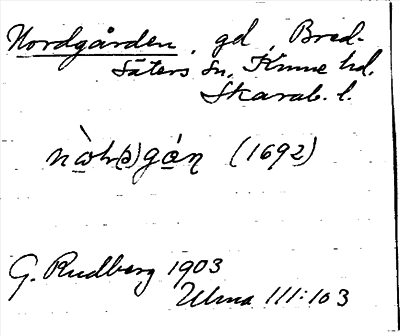 Nordgården, gd, Bred-
säters sn, Kinne hd.
Skarab. l.
(1692)
G. Rudberg 1903
Ulma 111:103